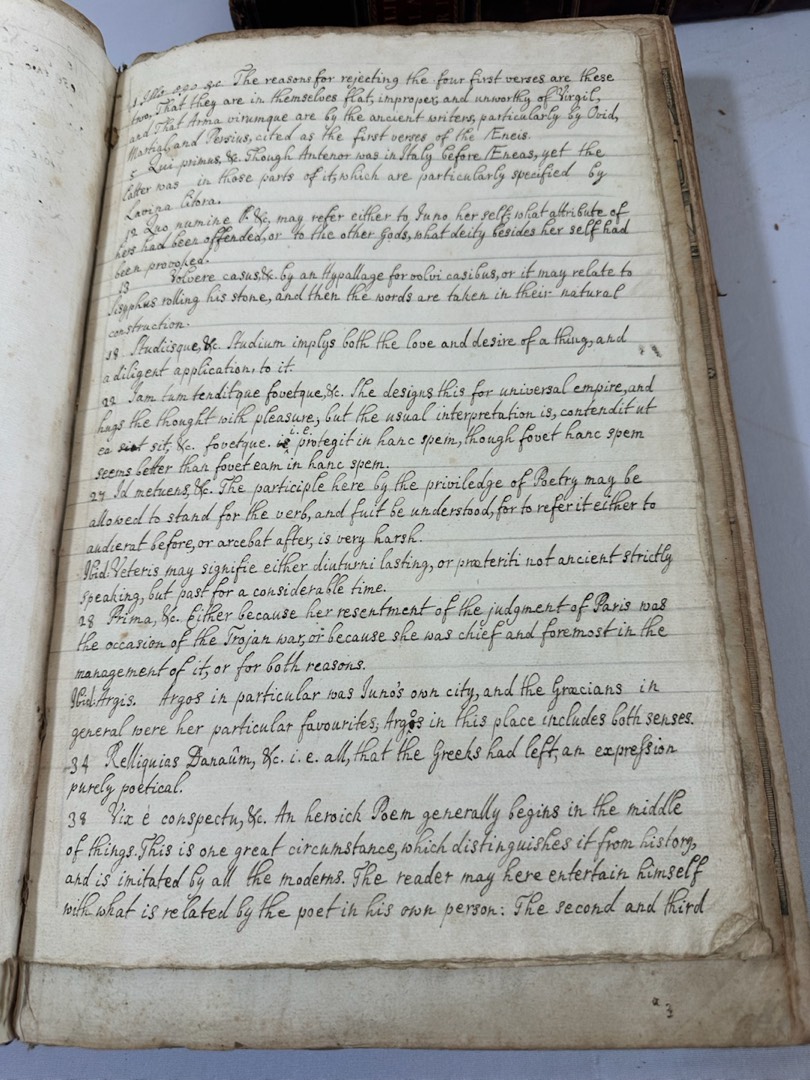 1. Ille ego &c. The reasons for rejecting the four first verses are these
two, That they are in themselves flat, improper, and unworthy of Virgil,
and That Arma virumque are by the ancient writers, particularly by Ovid,
Martial, and Persius, cited as the first verses of the Æneis.
5 Qui primus, &c. Though Antenor was in Italy before Æneas, yet the
latter was in those parts of it, which are particularly specified by
Lavina litora.
12 Quo numine l. &c, may refer either to Iuno her self, what attribute of
hers had been offended, or to the other Gods, what deity besides her self had
been provoked.
13 Volvere casus, &c. by an Hypallage for volvi casibus, or it may relate to
Sisyphus rolling his stone, and then the words are taken in their natural
construction.
18 Studiisque, &c. Studium implys both the love and desire of a thing, and
a diligent application, to it.
22 Iam tum tenditque fovetque, &c. She designs this for universal empire, and
hugs the thought with pleasure, but the usual interpretation is, contendit ut
ea sit, &c. fovetque. i.e. protegit in hanc spem, though fovet hanc spem
seems better than fovet eam in hanc spem.
27 Id metuens, &c. The participle here by the priviledge of Poetry may be
allowed to stand for the verb, and fuit be understood, for to refer it either to
audierat before, or arcebat after, is very harsh.
Ibid. Veteris may signifie either diuturni lasting, or præteriti not ancient strictly
speaking, but past for a considerable time.
28 Prima, &c. Either because her resentment of the judgment of Paris was
the occasion of the Trojan war, or because she was chief and foremost in the
management of it, or for both reasons.
Ibid. Argis. Argos in particular was Iuno's own city, and the Græcians in
general were her particular favourites; Argos in this place includes both senses.
34 Relliquias Danaûm, &c. i. e. all, that the Greeks had left, an expression
purely poetical.
38 Vix è conspectu, &c. An heroick Poem generally begins in the middle
of things. This is one great circumstance, which distinguishes it from history,
and is imitated by all the moderns. The reader may here entertain himself
with what is related by the poet in his own person: The second and third
a 3